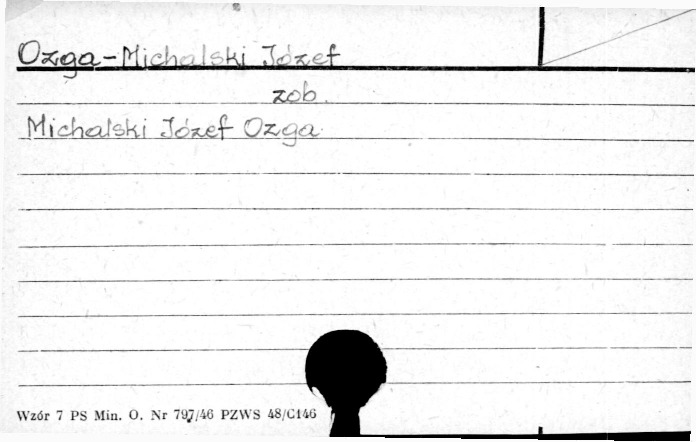 Ozga-Michalski Józef
zob.
Michalski Józef Ozga
Wzór 7 PS Min. O. Nr 797/46 PZWS 48/C146